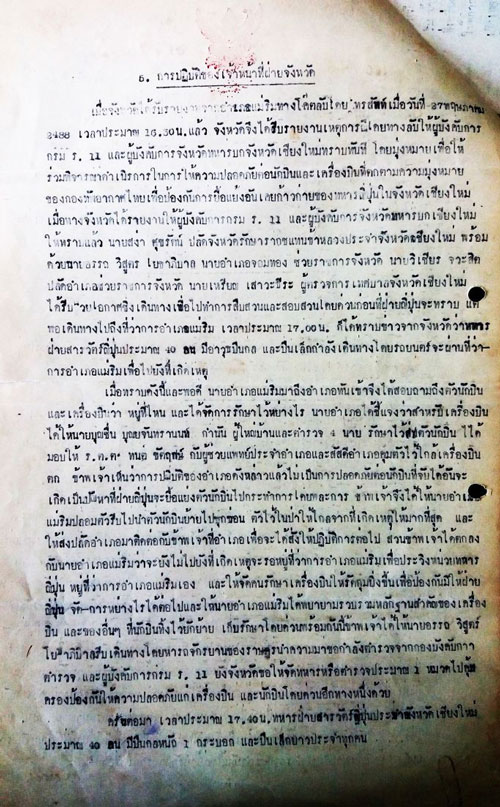 5. การปฏิบัติของเจ้าหน้าที่ฝ่ายจังหวัด
เมื่อจังหวัดได้รับรายงานจากอำเภอแม่ริมทางโดยโทรศัพท์ เมื่อวันที่ 27 พฤษภาคม
2488 เวลาประมาณ 16.30 น. แล้ว จังหวัดจึงได้รับรายงานเหตุการณ์โดยทางลับให้ผู้บังคับการ
กรม ร. 11 และผู้บังคับการจังหวัดทหารบกจังหวัดเชียงใหม่ทราบทันที โดยมุ่งหมายเพื่อให้
ร่วมพิจารณาดำเนิรการในการให้ความปลอดภัยต่อนักบินและเครื่องบินที่ตกตามความมุ่งหมาย
ของกองทัพอากาศไทยเพื่อป้องกันการยื้อแย่งอันเคยก้าวก่ายของทหารญี่ปุ่นในจังหวัดเชียงใหม่
เมื่อทางจังหวัดได้รายงานให้ผู้บังคับการกรม ร. 11 และผู้บังคับการจังหวัดทหารบกเชียงใหม่
ให้ทราบแล้ว นายสง่า ศุขรัตน์ ปลัดจังหวัดรักษาราชการแทนข้าหลวงประจำจังหวัดเชียงใหม่ พร้อม
ด้วยนายอรรถ วิสูตร โยธาภิบาล นายอำเภอจอมทอง ช่วยราชการจังหวัด นายวิเชียร
ปลัดอำเภอช่วยราชการจังหวัด นายเหรียญ ผู้ตรวจการเทศบาลจังหวัดเชียงใหม่
ได้รีบฉวยโอกาสชิงเดินทางเพื่อไปทำการสืบสวนและสอบสวนโดยด่วนก่อนที่ฝ่ายญี่ปุ่นจะทราบ แต่
พอเดินทางไปถึงที่ว่าการอำเภอแม่ริม เวลาประมาณ 17.00 น. ก็ได้ทราบข่าวจากจังหวัดว่าทหาร
ฝ่ายสารวัตร์ญี่ปุ่นประมาณ 40 คน มีอาวุธปืนกล และปืนเล็กกำลังเดินทางโดยรถยนตร์จะผ่านที่ว่า
การอำเภอแม่ริมเพื่อไปยังที่เกิดเหตุ
เมื่อทราบดังนี้และพอดี นายอำเภอแม่ริมมาถึงอำเภอทันเข้าจึงได้สอบถามถึงตัวนักบิน
และเครื่องบินว่า หยู่ที่ไหน และได้จัดการรักษาไว้หย่างไร นายอำเภอได้ชี้แจงว่าสำหรับเครื่องบิน
ได้ให้นายบุญชื่น กำนัน ผู้ใหญ่บ้านและตำรวจ 4 นาย รักษาไว้ ตัวนักบิน ได้
มอบให้ ร.ต.ต. กับผู้ช่วยแพทย์ประจำอำเภอและสัสดีอำเภอคุมตัวไว้ใกล้เครื่องบิน
ตก ข้าพเจ้าเห็นว่าการปฏิบัติของอำเภอดังกล่าวแล้วไม่เป็นการปลอดภัยต่อนักบินที่จับได้อันจะ
เกิดเป็นปัญหาที่ฝ่ายญี่ปุ่นจะยื้อแย่งตัวนักบินไปกระทำการโดยพลการ ข้าพเจ้าจึงได้ให้นายอำเภอ
แม่ริมปลอมตัวรีบไปนำตัวนักบินย้ายไปซุกซ่อน ตัวไว้ในป่าให้ไกลจากที่เกิดเหตุให้มากที่สุด และ
ให้ส่งปลัดอำเภอมาติดต่อกับข้าพเจ้าที่อำเภอเพื่อจะได้สั่งให้ปฏิบัติการต่อไป ส่วนข้าพเจ้าได้ตกลง
กับนายอำเภอแม่ริมว่าจะยังไม่ไปยังที่เกิดเหตุจะรอหยู่ที่ว่าการอำเภอแม่ริมเพื่อประวิงหน่วยทหาร
ญี่ปุ่น หยู่ที่ว่าการอำเภอแม่ริมเอง และให้จัดคนรักษาเครื่องบินให้รัดกุมยิ่งขึ้นเพื่อป้องกันมิให้ฝ่าย
ญี่ปุ่น จัดการหย่างไรได้ต่อไปและให้นายอำเภอแม่ริมได้พยายามรวบรวมหลักฐานสำคัญของเครื่อง
บิน และของอื่นๆ ที่นักบินทิ้งไว้ยักย้าย เก็บรักษาโดยด่วนพร้อมกันนี้ข้าพเจ้าได้ให้นายอรรถ วิสูตร์
โยธาภิบาลรีบเดินทางโดยทางรถจักรยานของราษฎรนำความมาขอกำลังตำรวจจากกองบังคับการ
ตำรวจ และผู้บังคับการกรม ร. 11 ยังจังหวัดขอให้จัดทหารหรือตำรวจประมาณ 1 หมวดไปคุ้ม
ครองป้องกันให้ความปลอดภัยแก่เครื่องบิน และนักบินโดยด่วนอีกทางหนึ่งด้วย
ครั้นต่อมา เวลาประมาณ 17.40 น. ทหารฝ่ายสารวัตร์ญี่ปุ่นประจำจังหวัดเชียงใหม่
ประมาณ 40 คน มีปืนกลหนัก 1 กระบอก และปืนเล็กยาวประจำทุกคน